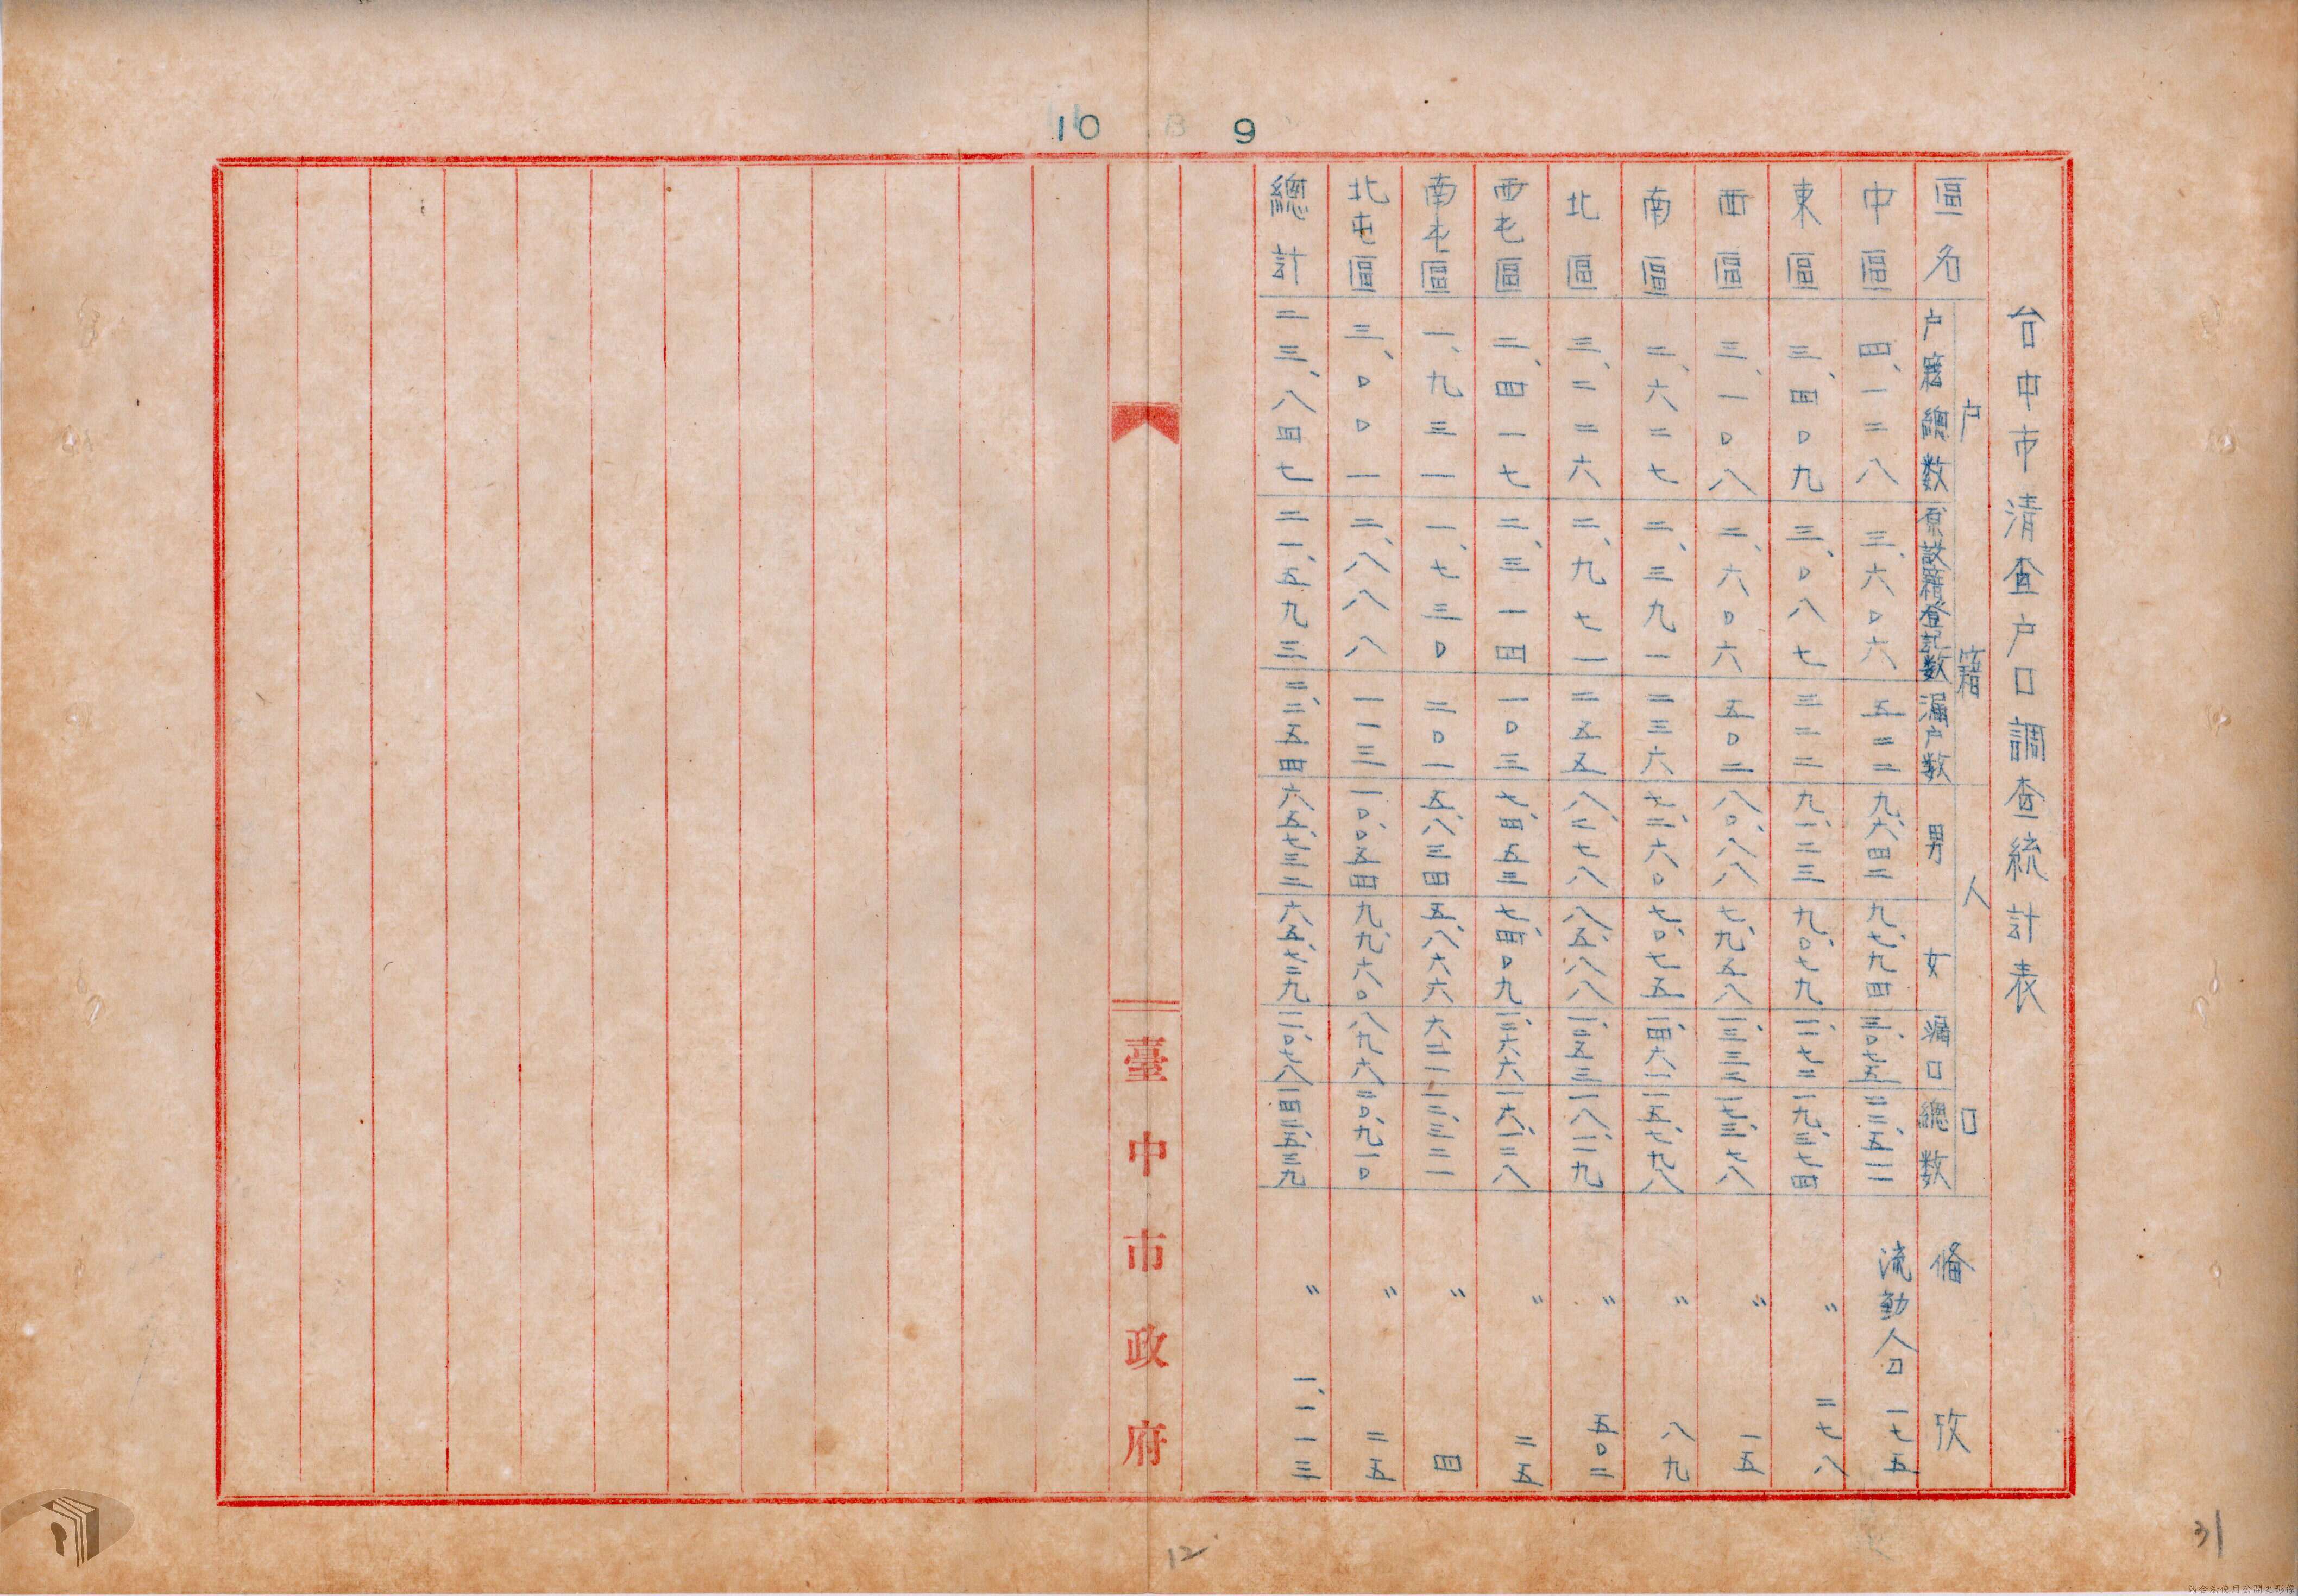 9
10
台中市清查户口調查統計表
區名 户籍 户籍總数 原設籍登記数 漏户数 人口 男 女 漏口 總数 備攷
中區 四、一二八 三、六〇六 五二二 九、六四二 九、七九四 三、〇七五 二二、五一一 流動人口 一七五
東區 三、四〇九 三、〇八七 三二二 九、一二三 九、〇七九 一、一七二 一九、三七四 〃 二七八
西區 三、一〇八 二、六〇六 五〇二 八、〇八八 七、九五八 一、三三二 一七、三七八 〃 一五
南區 二、六二七 二、三九一 二三六 七、二六〇 七、〇七五 一、四六一 一五、七九八 〃 八九
北區 三、二二六 二、九七一 二五五 八、二七八 八、五八八 一、二五三 一八、一一九 〃 五〇二
西屯區 二、四一七 二、三一四 一〇三 七、四五三 七、四〇九 一、二六六 一六、一二八 〃 二五
南屯區 一、九三一 一、七三〇 二〇一 五、八三四 五、八六六 六二一 一二、三二一 〃 四
北屯區 三、〇〇一 二、八八八 一一三 一〇、〇五四 九、九六〇 八九六 二〇、九一〇 〃 二五
總計 二三、八四七 二一、五九三 二、二五四 六五、七三二 六五、七二九 一一、〇七八 一四二、五三九 〃 一、一一三
臺中市政府
12
31
請合法使用公開之影像